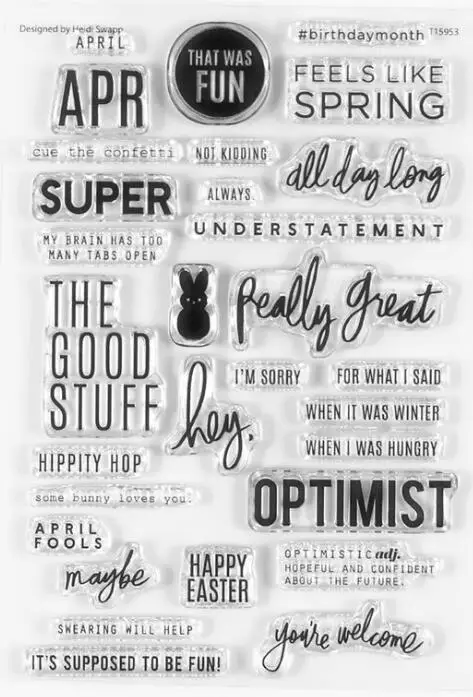 Designed by Heidi Swapp
T15953
APRIL
APR
THAT WAS
FUN
#birthdaymonth
FEELS LIKE
SPRING
cue the confetti
NOT KIDDING
all day long
SUPER
ALWAYS.
UNDERSTATEMENT
MY BRAIN HAS TOO
MANY TABS OPEN
THE
GOOD
STUFF
Really Great
hey,
I'M SORRY
FOR WHAT I SAID
WHEN IT WAS WINTER
WHEN I WAS HUNGRY
HIPPITY HOP
some bunny loves you.
OPTIMIST
APRIL
FOOLS
maybe
HAPPY
EASTER
OPTIMISTIC adj.
HOPEFUL AND CONFIDENT
ABOUT THE FUTURE.
SWEARING WILL HELP
you're welcome
IT'S SUPPOSED TO BE FUN!